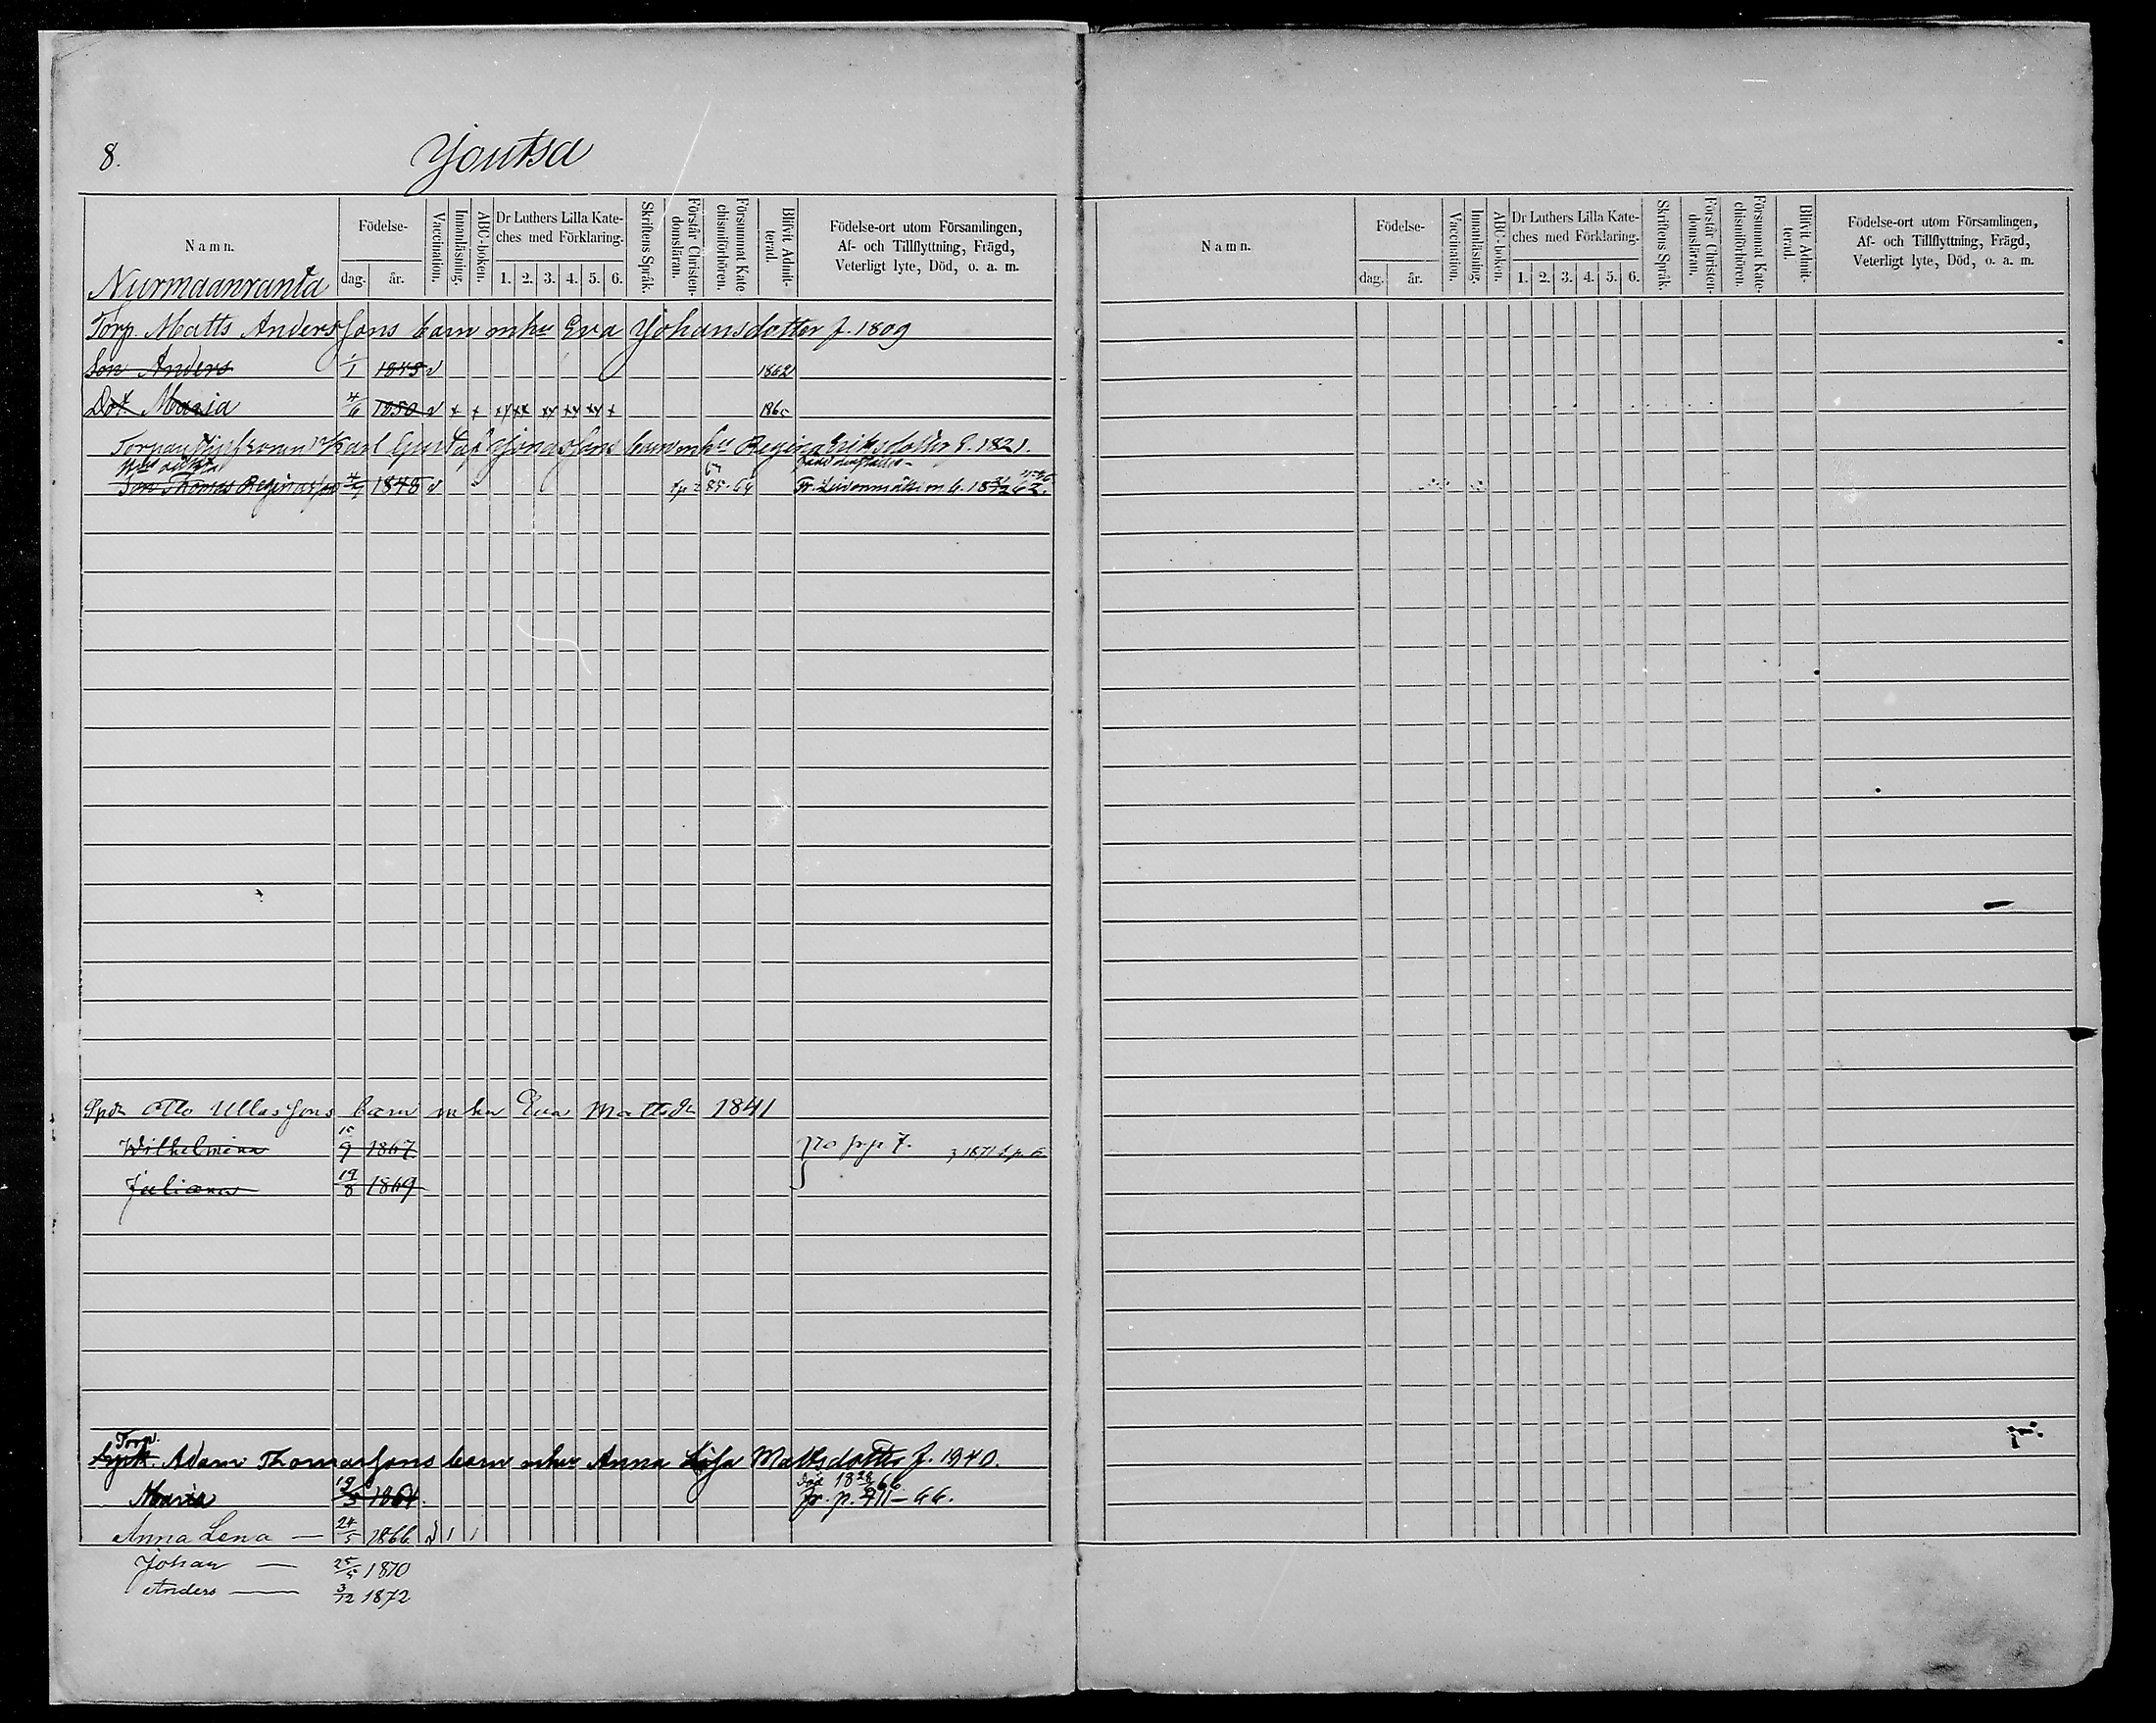 8.
Joutsa
Namn. Födelse- dag. år. Vaccination. Innanläsning. ABC-boken. Dr Luthers Lilla Kateches med Förklaring. 1. 2. 3. 4. 5. 6. Skriftens Språk. Förstår Christendomsläran. Försummat Katechismiförhören. Blivit Admitterad. Födelse-ort utom Församlingen, Af- och Tillflyttning, Frägd, Veterligt lyte, Död, o. a. m.
Nurmaanranta
Torp. Matts Anderssons barn mhu Eva Johansdotter f. 1809
Son Anders 1/1 1843 v 1862
Dot Maria 4/6 1850 v
Karl Gustaf Jonassons barn mhu Regina Eriksdotter f. 1821.
Son Thomas 1848 v
Otto Ullassons barn mhu Eva Matts dr 1841
Wilhelmina 15/9 1867
Juliana 19/8 1869
Torp.
Adam Thomassons barn mhu Anna Matts dotter f. 1940.
Maria 1864. Fr. p.
Anna Lena — 24/5 1866 v
Johan — 25/5 1870
Anders — 3/12 1872
Namn. Födelse- dag. år. Vaccination. Innanläsning. ABC-boken. Dr Luthers Lilla Kateches med Förklaring. 1. 2. 3. 4. 5. 6. Skriftens Språk. Förstår Christendomsläran. Försummat Katechismiförhören. Blivit Admitterad. Födelse-ort utom Församlingen, Af- och Tillflyttning, Frägd, Veterligt lyte, Död, o. a. m.